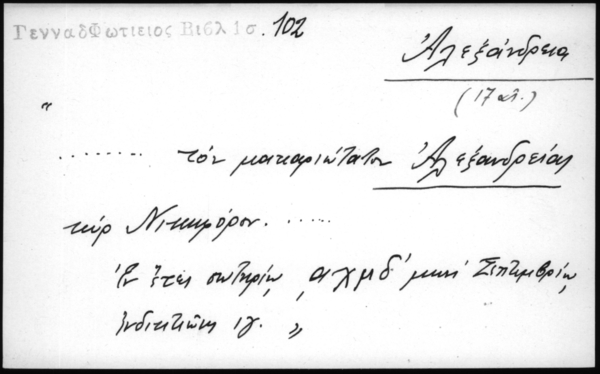 ΓενναδΦωτιειος Βιβλ 1σ. 102
Ἀλεξάνδρεια
(17 αἰ.)
"
........ τόν μακαριώτατον Ἀλεξανδρείας
κύρ Νικηφόρον. .....
Ἐν ἔτει σωτηρίῳ, αχμδ' μηνί Σεπτεμβρίῳ,
ἰνδικτιῶνος ιγ. "